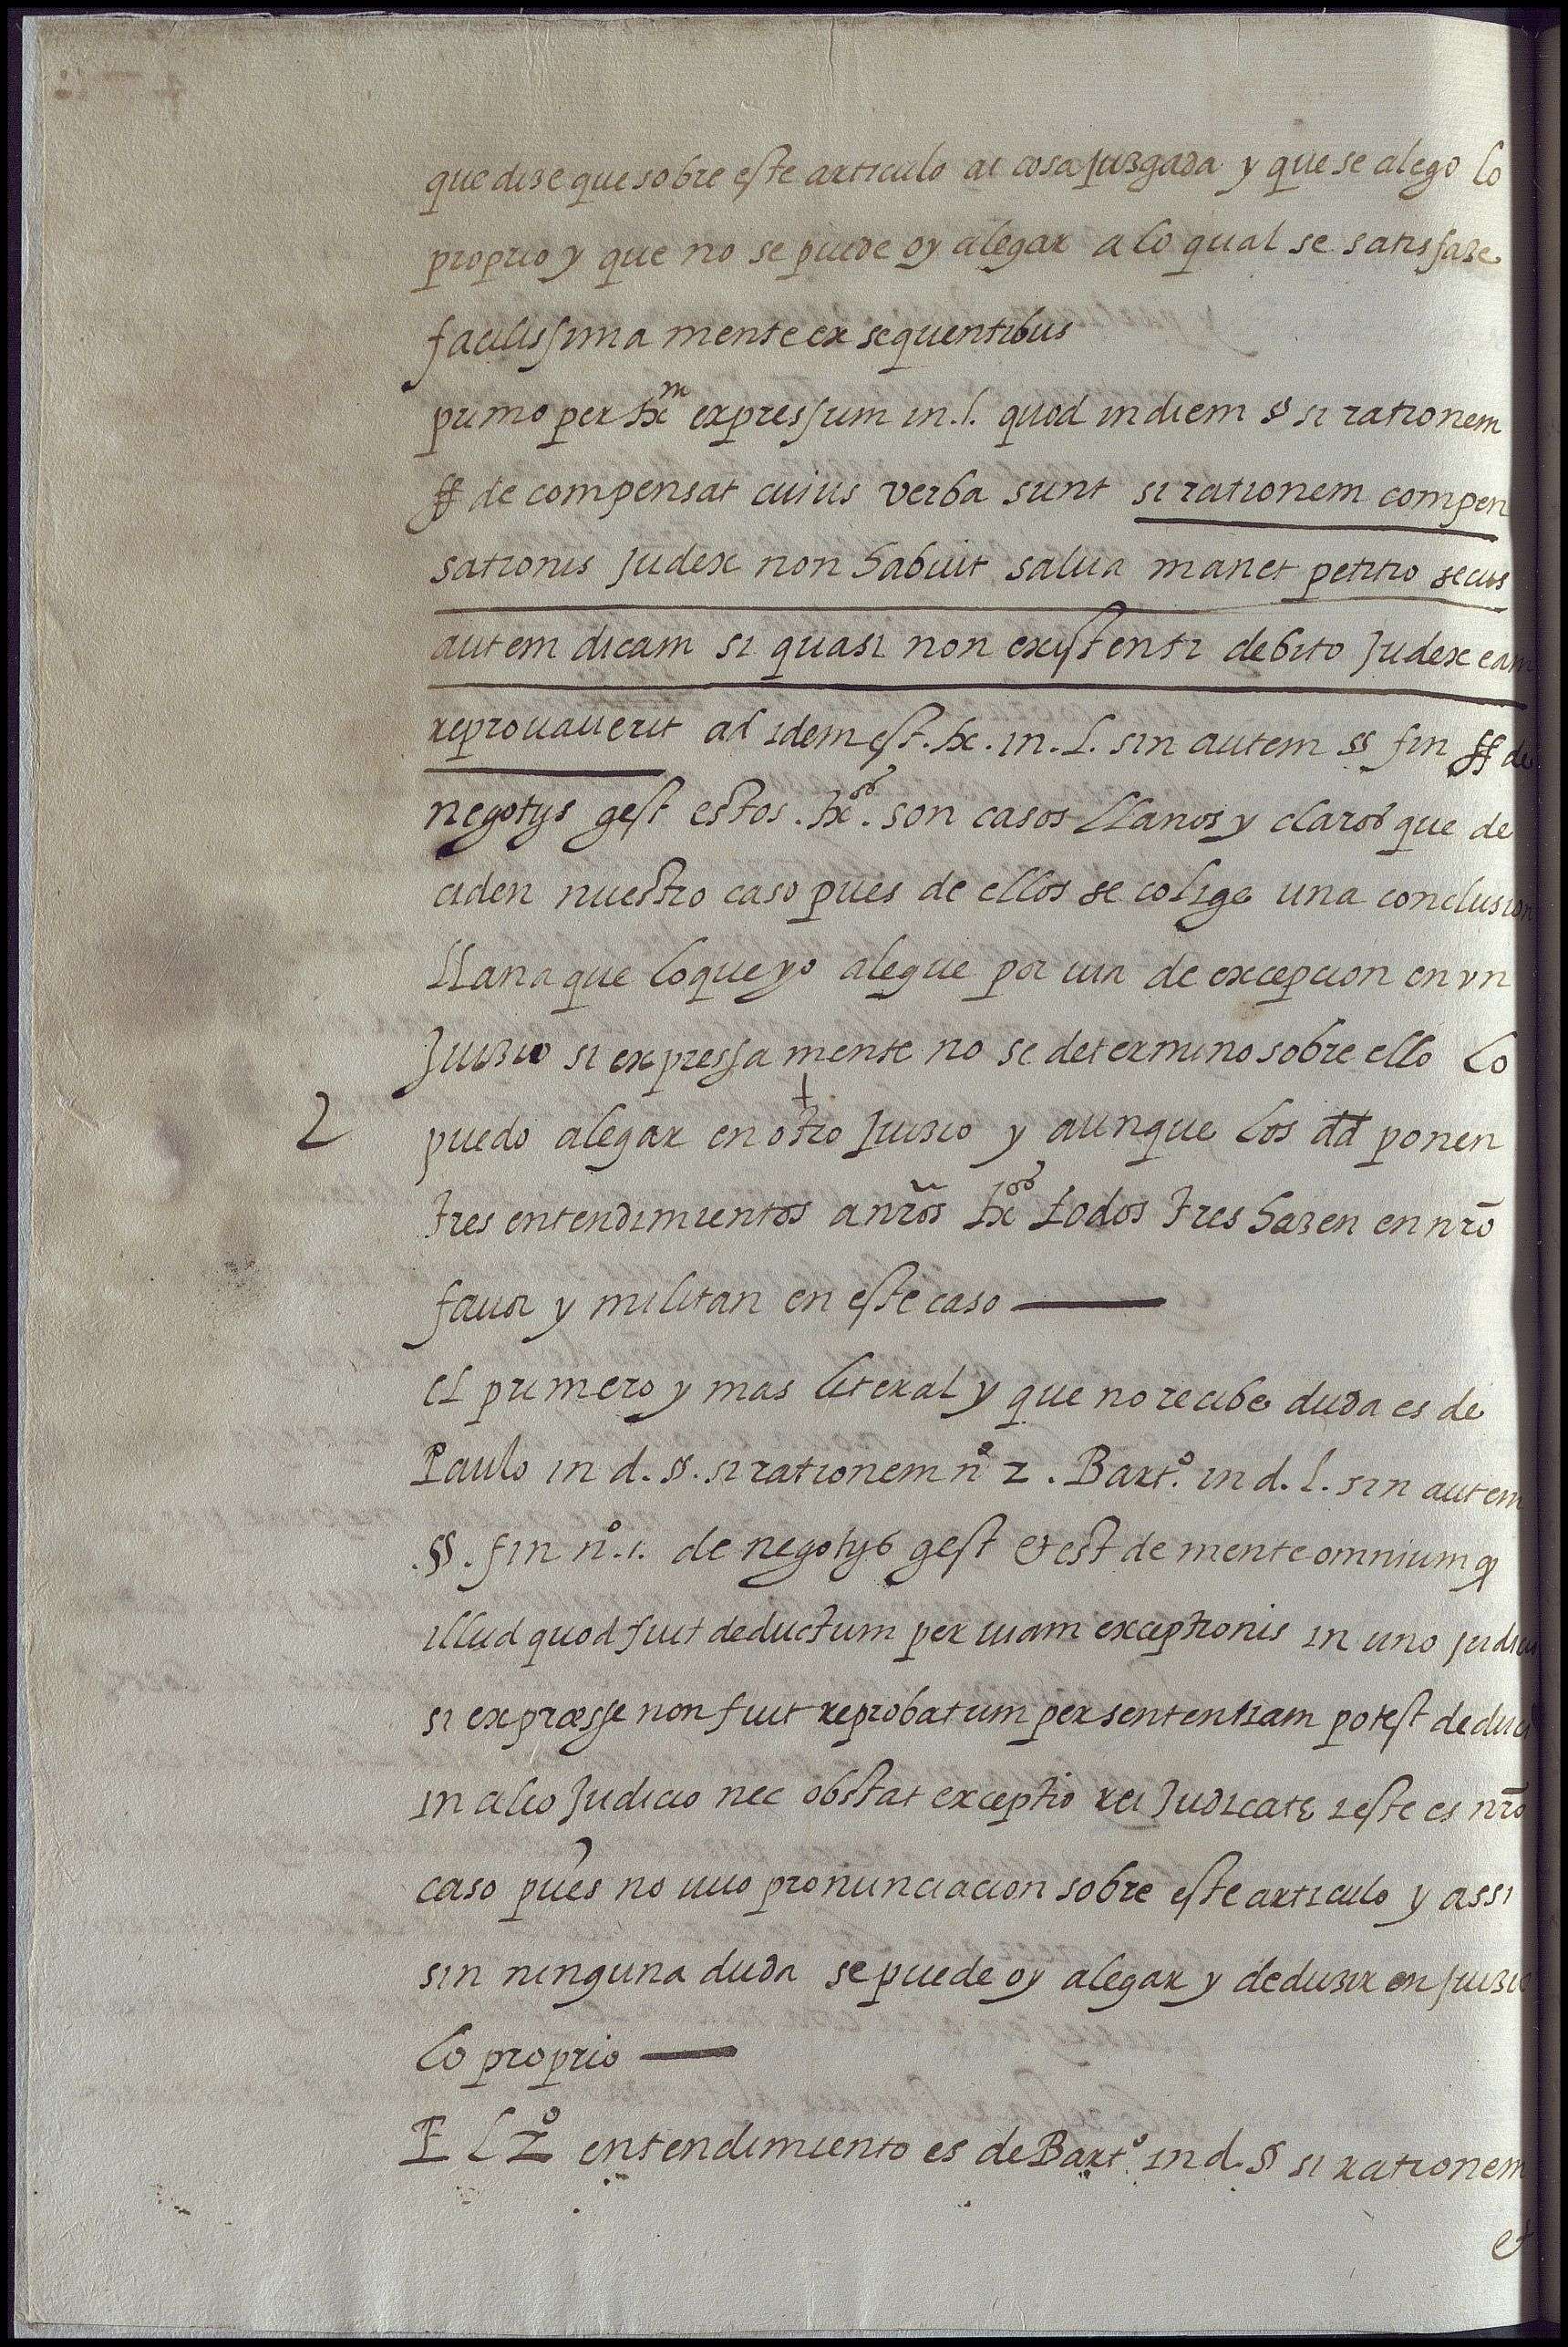 que dize que sobre este articulo ai cosa juzgada y que se alego lo
proprio y que no se puede oy alegar a lo qual se satisfaze
facilissima mente ex sequentibus
primo per tx^m expressum in. l. quod in diem § si rationem
ff de compensat cuius verba sunt si rationem compen
sationis judex non habuit salua manet petitio secus
autem dicam si quasi non existenti debito judex eam
reprouauerit ad idem est. tx. in. l. sin autem § fin ff de
negotijs gest estos. tx^os. son casos llanos y claros que de
ciden nuestro caso pues de ellos se colige una conclusion
llana que lo que yo alegue por uia de excepcion en vn
juizio si expressa mente no se determino sobre ello lo
2 puedo alegar en otro juizio y aunque los dd ponen
tres entendimientos a nr̃os tx^os todos tres hazen en nr̃o
fauor y militan en este caso —
el primero y mas literal y que no recibe duda es de
Paulo in d. §. si rationem nº 2. Bartº. in d. l. sin autem
.§. fin nº. 1. de negotijs gest et est de mente omnium q̃
illud quod fuit deductum per uiam exceptionis in uno judicio
si expræsse non fuit reprobatum per sententiam potest deduci
in alio judicio nec obstat exceptio rei judicate i este es nr̃o
caso pues no uuo pronunciacion sobre este articulo y assi
sin ninguna duda se puede oy alegar y deduzir en juizio
lo proprio —
El 2º entendimiento es de Bartº. in d. § si rationem
et